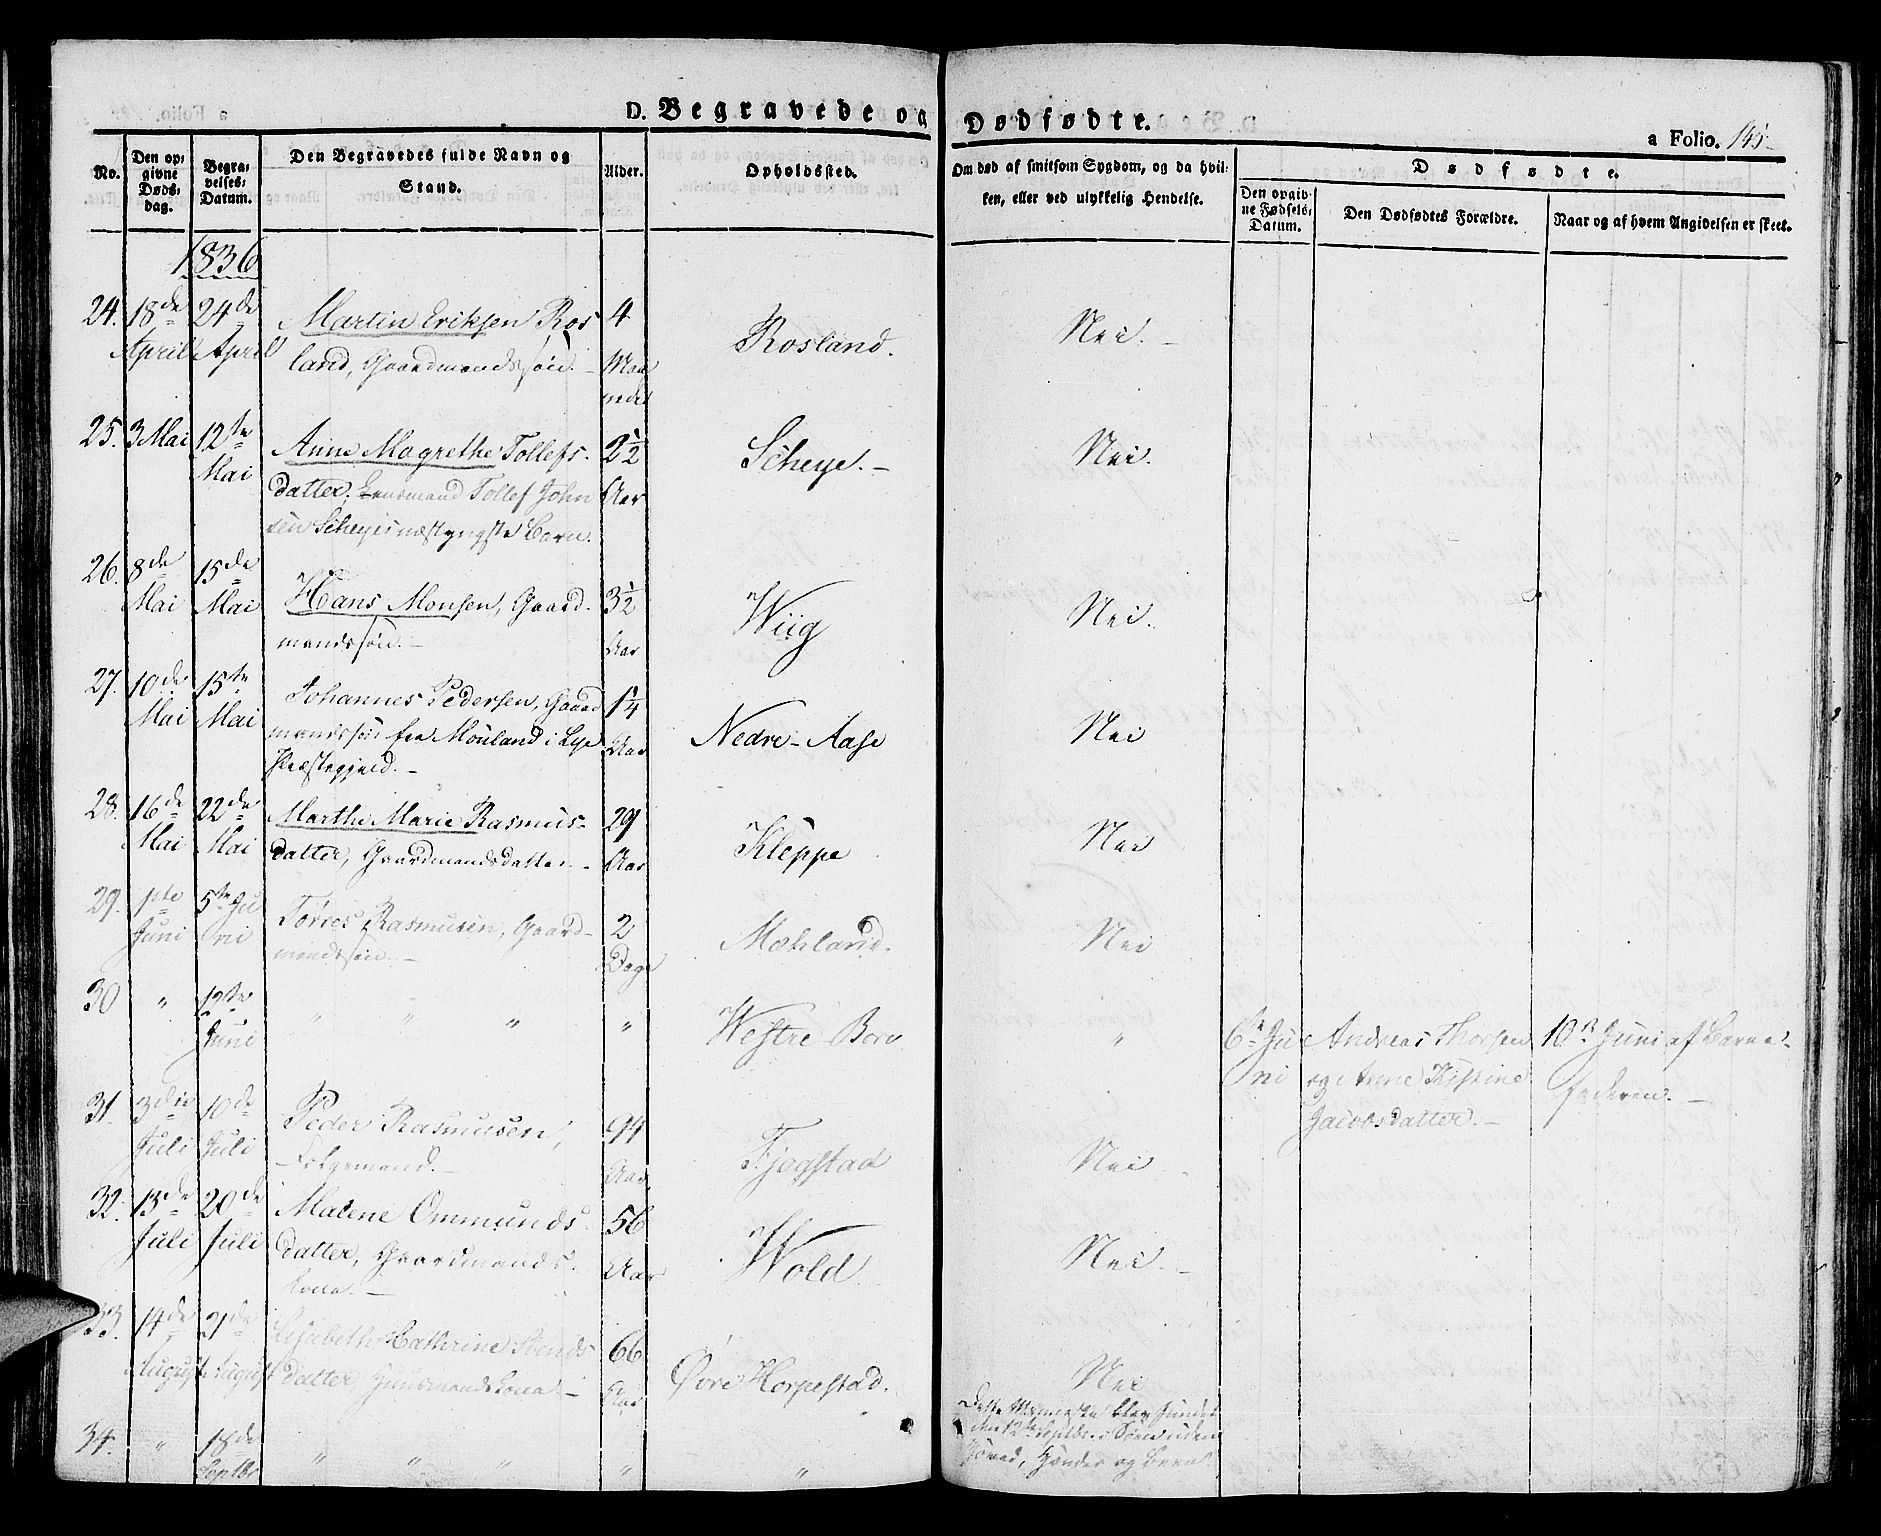 D. Begravede og Dødfødte.
a Folio. 145.
No.
Den opgivne Døds-dag.
Begravelses-Datum.
Den Begravedes fulde Navn og Stand.
Alder.
Opholdssted.
Om død af smitsom Sygdom, og da hvilken, eller ved ulykkelig Hendelse.
Dødfødte.
Den opgivne Fødsels-Datum.
Den Dødfødtes Forældre.
Naar og af hvem Angivelsen er skeet.
1836
24. 18de April 24de April Martin Eriksen Rosland, Gaardmandssøn. 4 Maaneder Rosland. Nei.
25. 3 Mai 12te Mai Anne Magrethe Tollefsdatter, Lensmand Tollef Johnsen Scheyes næstyngste Barn. 2½ Aar Scheye. Nei.
26. 8de Mai 15de Mai Hans Monsen, Gaardmandssøn. 3½ Aar Wiig Nei.
27. 10de Mai 15te Mai Johannes Pedersen, Gaardmandssøn fra Mouland i Lye Præstegjeld. 1¼ Aar Nedre-Aase Nei
28. 16de Mai 22de Mai Marthe Marie Rasmusdatter, Gaardmandsdatter. 29 Aar Kleppe Nei
29. 1ste Juni 5te Juni Torres Rasmusen, Gaardmandssøn. 2 Dage Mæhland. Nei
30 " 12te Juni " " " " Westre Bore " 6te Juni Andreas Thorsen og Anne Kistine Jacobsdatter. 10de Juni af Barnefaderen.
31. 3die Juli 10de Juli Peder Rasmusen, Folgemand. 94 Aar Fjogstad Nei
32. 13de Juli 20de Juli Malene Ommundsdatter, Gaardmandskone. 56 Aar Wold Nei.
33. 14de August 21de August Elisabeth Cathrine Svendsdatter Huusmandskone. 66 Aar Øvre Horpestad. Nei
34. " 18de Septbr " " " " " Dette Menneske blev funden den 12te Septbr. i Søen uden Hoved, Hænder og Been.